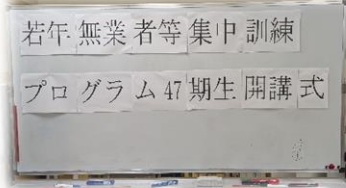 若年無業者等集中訓練
プログラム47期生開講式